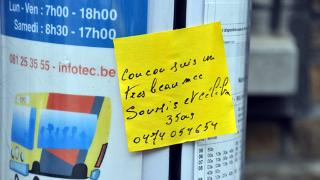 Lun - Ven : 7h00 - 18h00
Samedi : 8h30 - 17h00
081 25 35 55 - infotec.be
Coucou suis un
tres beau mec
Soumis et célib
35 ans
0474 057654